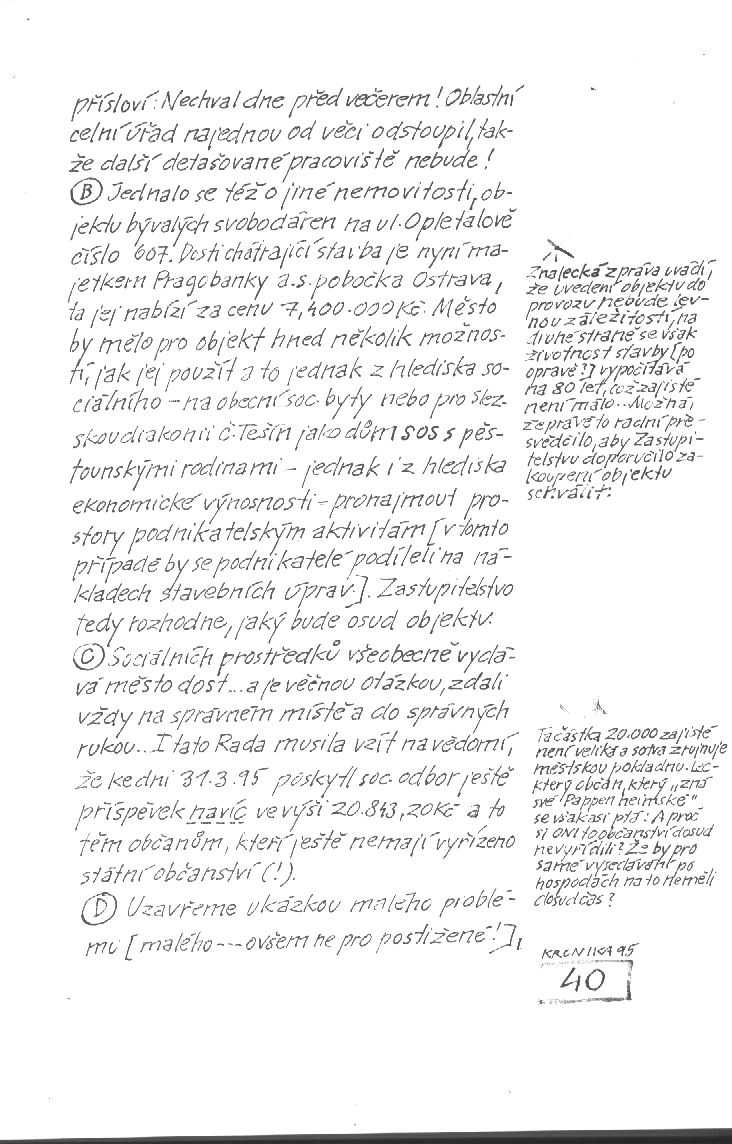 přísloví: Nechval dne před večerem! Oblastní
celní úřad najednou od věci odstoupil, tak-
že další detašované pracoviště nebude!
Ⓑ Jednalo se též o jiné nemovitosti, ob-
jektu bývalých svobodáren na ul. Opletalově
číslo 607. Dosti chátrající stavba je nyní ma-
jetkem Pragobanky a.s. pobočka Ostrava,
ta jej nabízí za cenu 7,400.000 Kč. Město
by mělo pro objekt hned několik možnos-
tí, jak jej použít a to jednak z hlediska so-
ciálního – na obecní soc. byty nebo pro Slez-
skou diakonii Č. Těšín jako dům SOS s pěs-
tounskými rodinami – jednak i z hlediska
ekonomické výnosnosti – pronajmout pro-
story podnikatelským aktivitám [v tomto
případě by se podnikatelé podíleli na ná-
kladech stavebních úprav]. Zastupitelstvo
tedy rozhodne, jaký bude osud objektu.
Ⓒ Sociálních prostředků všeobecně vydá-
vá město dost... a je věčnou otázkou, zdali
vždy na správném místě a do správných
rukou... I tato Rada musila vzít na vědomí,
že ke dni 31.3.95 poskytl soc. odbor ještě
příspěvek navíc ve výši 20.843,20 Kč a to
těm občanům, kteří ještě nemají vyřízeno
státní občanství (!).
Ⓓ Uzavřeme ukázkou malého problé-
mu [malého --- ovšem ne pro postižené!],
Znalecká zpráva uvádí,
že uvedení objektu do
provozu nebude lev-
nou záležitostí, na
druhé straně se však
životnost stavby [po
opravě?] vypočítává
na 80 let, což zajisté
není málo... Možná,
že právě to radní pře-
svědčilo, aby Zastupi-
telstvu doporučilo za-
koupení objektu
schválit.
Ta částka 20.000 zajisté
není veliká a sotva zrujnuje
městskou pokladnu. Lec-
který občan, který „zná
své Pappenheimské"
se však asi ptá: A proč
si ONI to občanství dosud
nevyřídili? Že by pro
samé vysedávání po
hospodách na to neměli
dosud čas?
KRONIKA 95
40